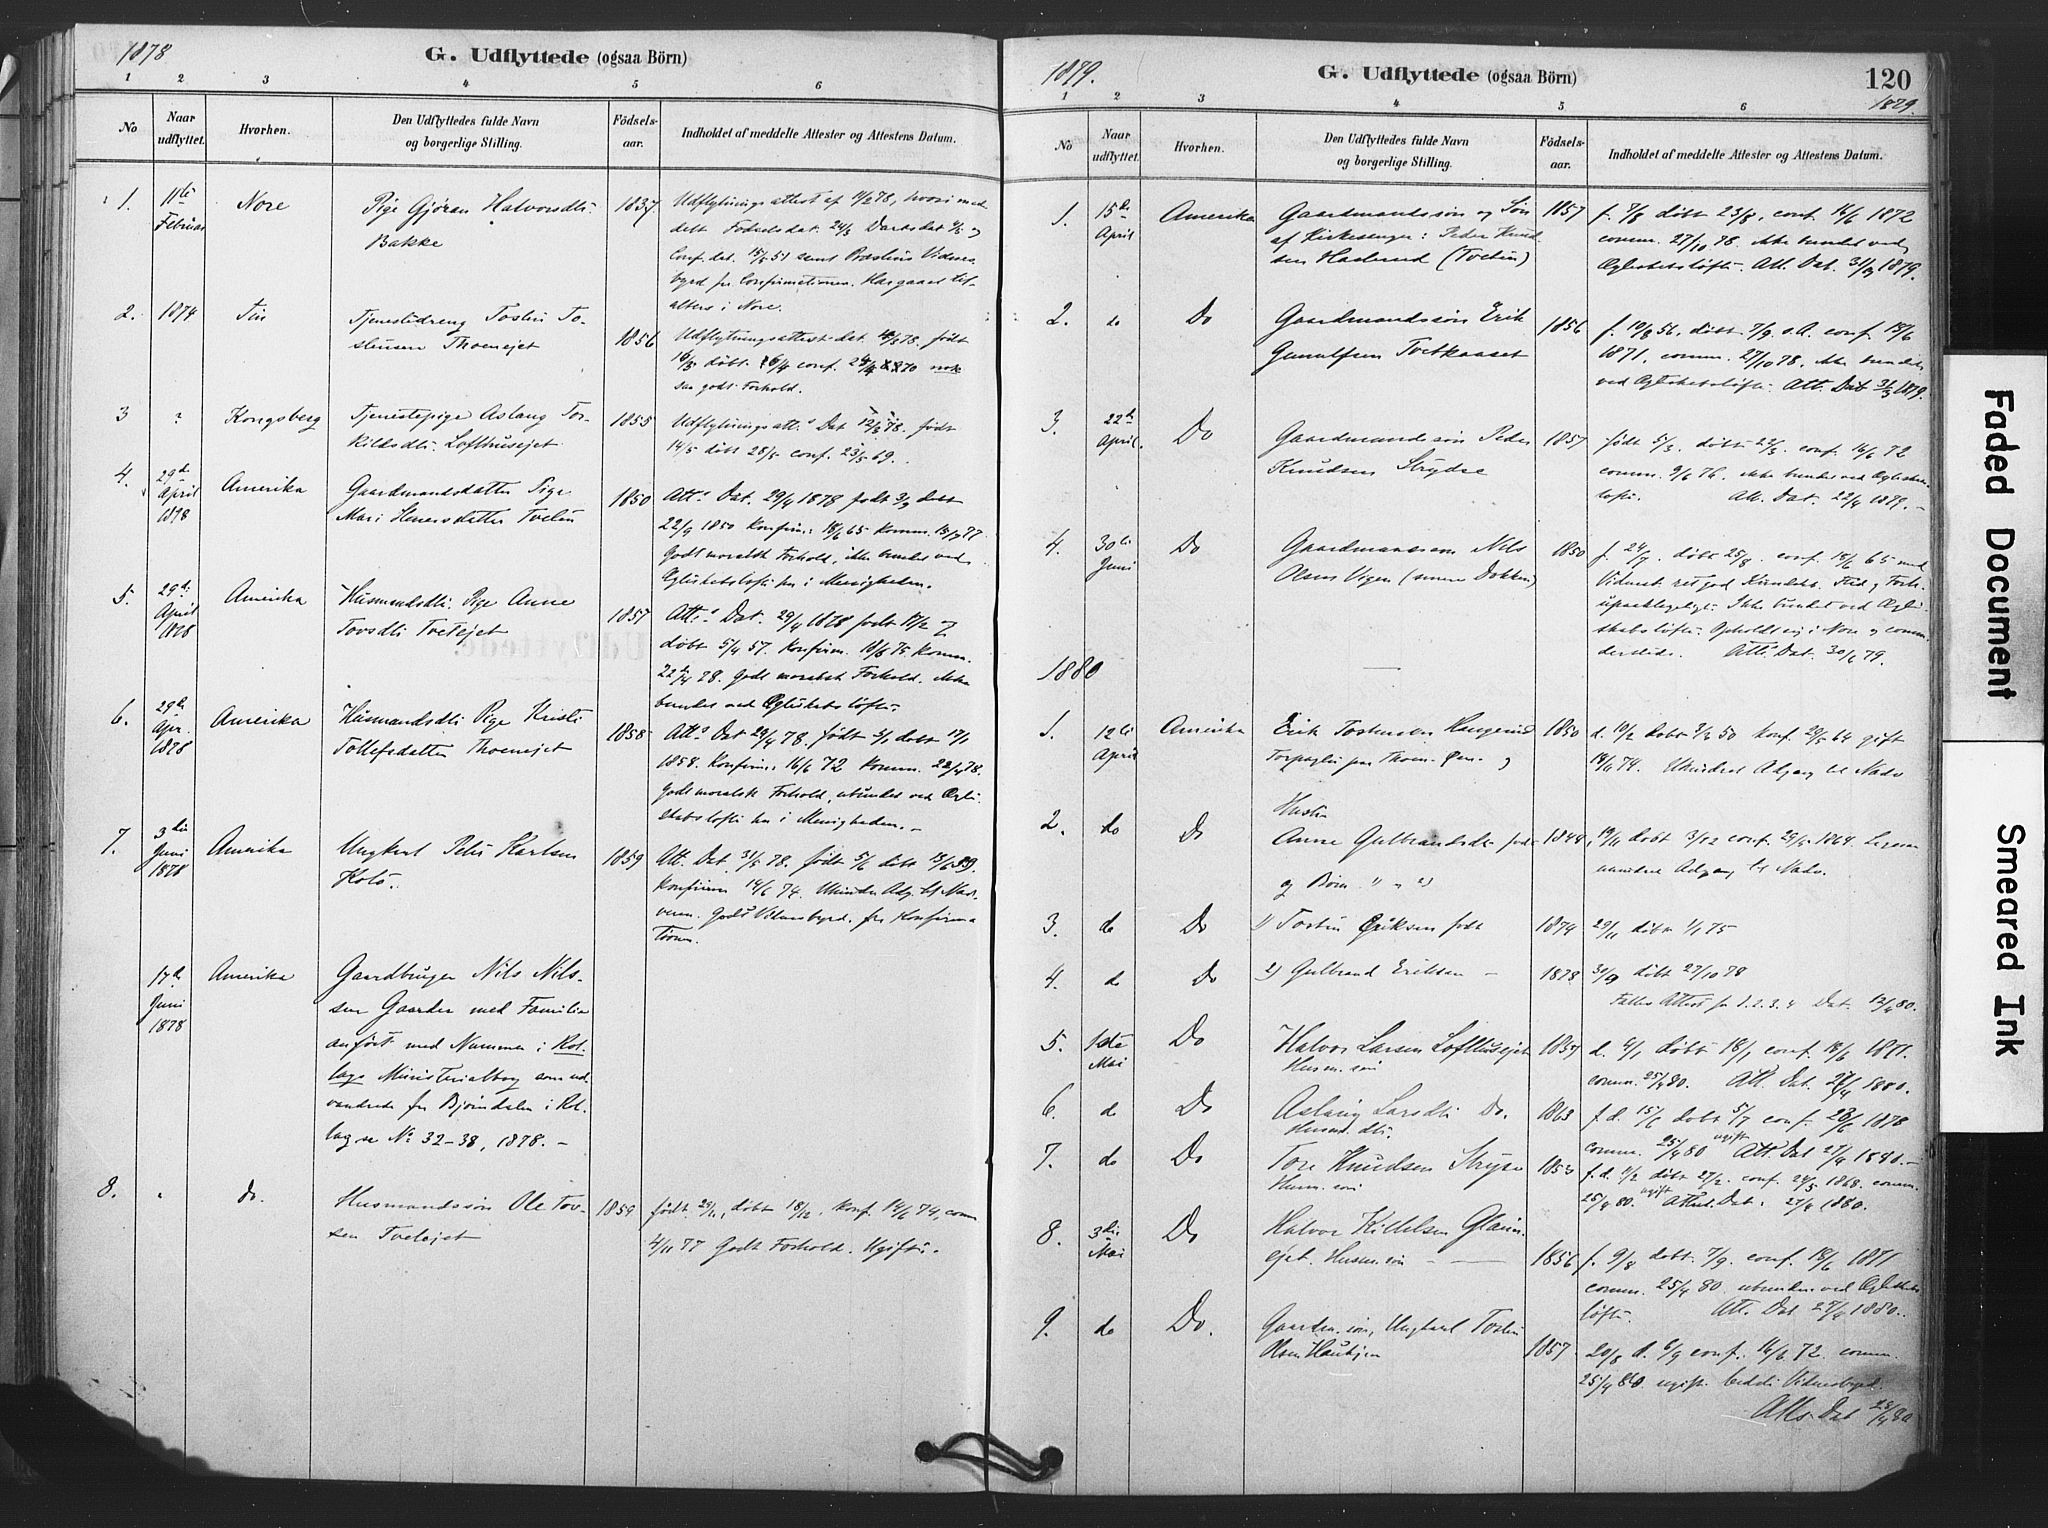 1878
G. Udflyttede (ogsaa Börn)
1 2 3 4 5 6
No
Naar udflyttet.
Hvorhen.
Den Udflyttedes fulde Navn og borgerlige Stilling.
Födsels-aar.
Indholdet af meddelte Attester og Attestens Datum.
1. 11te Februar
Nore
Pige Gjöran Halvorsdtr.
Bakke
1837
Udflytningsattest af 11/2 78, hvori med
delt Fødselsdat. 24/3 Daabsdat
Conf. dat. 15/5 51 samt Præstens Vidnes-
byrd fra Confirmationen.
alters i Nore.
2. 1874
Tin
Tjenestedreng Tosten To-
stensen Thoenejet
1856
Udflytningsattest dat. 78, født
16/3 döbt 26/4 conf. 70
saa godt Forhold.
3 "
Kongsberg
Tjenestepige Aslaug Tor-
kildsdtr. Lofthusejet
1855
Udflytningsatt. Dat 12/3 78. født
14/5 döbt 28/5 conf. 23/5 69.
4. 29de April 1878
Amerika
Gaardmandsdatter Pige
Mari Steners datter Tveten
1850
Att. Dat. 29/4 1878 født 3/9 döbt
22/9 1850 Konfirm. 18/6 65 Komm. 15/7 77
Godt moralsk Forhold, ikke bundet ved
Ægteskabsløfte her i Menigheden.
5. 29de April 1878
Amerika
Husmandsdtr. Pige Anne
Tovsdtr Tvetejet
1857
Att. Dat. 29/4 1878 født 17/2
døbt 5/4 57. Konfirm. 18/6 75 Komm.
22/4 78. Godt moralsk Forhold. Ikke
bundet ved Ægteskabsløfte.
6. 29de Apr. 1878
Amerika
Husmandsdtr Pige Kristi
Tollefsdatter Thoenejet
1858
Att. Dat 29/4 78. født 5/1 döbt 17/1
1858. Konfirm. 16/6 72 Komm. 22/4 78.
Godt moralsk Forhold, ubundet ved Ægte-
skabsløfte her i Menigheden.
7. 3die Juni 1878
Amerika
Ungkarl Peter Karlsen
Kolö.
1859
Att. Dat. 31/5 78. født 5/6 döbt 13/6 59.
Konfirm 14/6 74. Uhindr. Adg. til Nad-
veren. Godt Vidnesbyrd fra Konfirma
tionen.
17de Juni 1878
Amerika
Gaardbruger Nils Nils-
sen Gaarder med Familie
anført med Nummer i Rol-
lags Ministerialbog som ud-
vandrede fra Bjørndalen i Rol-
lag se No 32-38, 1878. -
8. "
do.
Husmandssön Ole Tov-
sen Tvetejet
1859
født 29/11, döbt 18/12, konf. 14/6 74, comm
4/11 77 Godt Forhold. Ugift.
1879.
G. Udflyttede (ogsaa Börn)
120
1879.
1 2 3 4 5 6
No
Naar udflyttet.
Hvorhen.
Den Udflyttedes fulde Navn og borgerlige Stilling.
Födsels-aar.
Indholdet af meddelte Attester og Attestens Datum.
1. 15de April
Amerika
Gaardmandssön og Sön
af Kirkesanger: Peder Knud-
sen Haslerud (Tveten)
1857
f. 7/8 döbt 23/8, conf. 16/6 1872
comm. 27/10 78. Ikke bundet ved
Ægteskabsløfte. Att. Dat. 31/3 1879.
2. do
Do
Gaardmandssön Erik
Gunulfsen Tvetkaaset
1856
f. 19/8 56, döbt 7/9 s.A. conf. 18/6
1871, comm. 27/10 78. Ikke bundet
ved Ægteskabsløfte. Att. Dat 31/3 1879.
3. 22de April.
Do
Gaardmandssön Peder
Knudsen Strydse
1857
født 5/3. döbt 22/3. conf. 16/6 72
comm. 9/6 76. ikke bundet ved Ægteskabs-
løfte. Att. Dat. 22/4 1879. -
4. 30te Juni
Do
Gaardmandssøn Nils
Olsen Vigen (senere Dokken)
1850
f. 24/7. döbt 25/8. conf. 18/6 65 med
Vidnesb. ret god Kundsk. Flid og Forh.
upaaklageligt. Ikke bundet ved Ægte-
skabsløfte. Opholdt sig i Nore og comm.
dersteds. Att. Dat. 30/6 79.
1880
1. 12te April
Amerika
Erik Tostensen Haugerud
Torpeplds paa Thoen. Ejen. og
1850
d. 19/2 döbt 3/3 50 konf. 29/5 64 gift
19/6 74. Uhindret Adgang til Nadv.
2. do
Do
Hustru
Anne Gulbrandsdtr. født
og Børn 1) og 2)
1844
19/11 döbt 3/12 conf. 29/5 1864.
uhindret Adgang til Nadv.
3. do
Do
1) Tosten Eriksen født
1874
29/11 döbt 1/1 75
4. do
Do
2) Gulbrand Eriksen -
1878
30/9 döbt 27/10 78
Fælles Attest for 1. 2. 3. 4 Dat. 12/4 80.
5. 1ste Mai
Do
Halvor Larsen Lofthusejet
Husm. sön
1857
d. 4/1 döbt 18/1 conf. 18/6 1871.
comm. 25/4 80. Att. Dat. 27/4 1880.
6. do
Do
Aslaug Larsdtr Do.
Husm. dtr.
1863
f. d. 15/6 döbt 5/7 conf. 23/6 1878
comm. 25/4 80 ugift Att. Dat 27/4 1880. -
7. do
Do
Tore Knudsen Strydse
Husm. sön
1853
f. d. 7/2 döbt 27/2. conf. 24/5 1868. comm.
25/4 80. ugift Attest. Dat. 27/4 1880.
8. 3die Mai
Do
Halvor Kittelsen Glaim-
ejet. Husm. sön
1856
f. 9/8 döbt 7/9. conf. 18/6 1871
comm. 25/4 80. ubunden ved Ægteskabs
løfte. Att. Dat. 27/4 1880.
9. do
Do.
Gaardm. sön, Ungkarl Tosten
Olsen Haukjen
1857.
20/8 d. 6/9 conf. 16/6 72. comm.
25/4 80 ugift. bedste Vidnesbyrd.
Atts. Dat 28/4 80
Faded Document
Smeared Ink